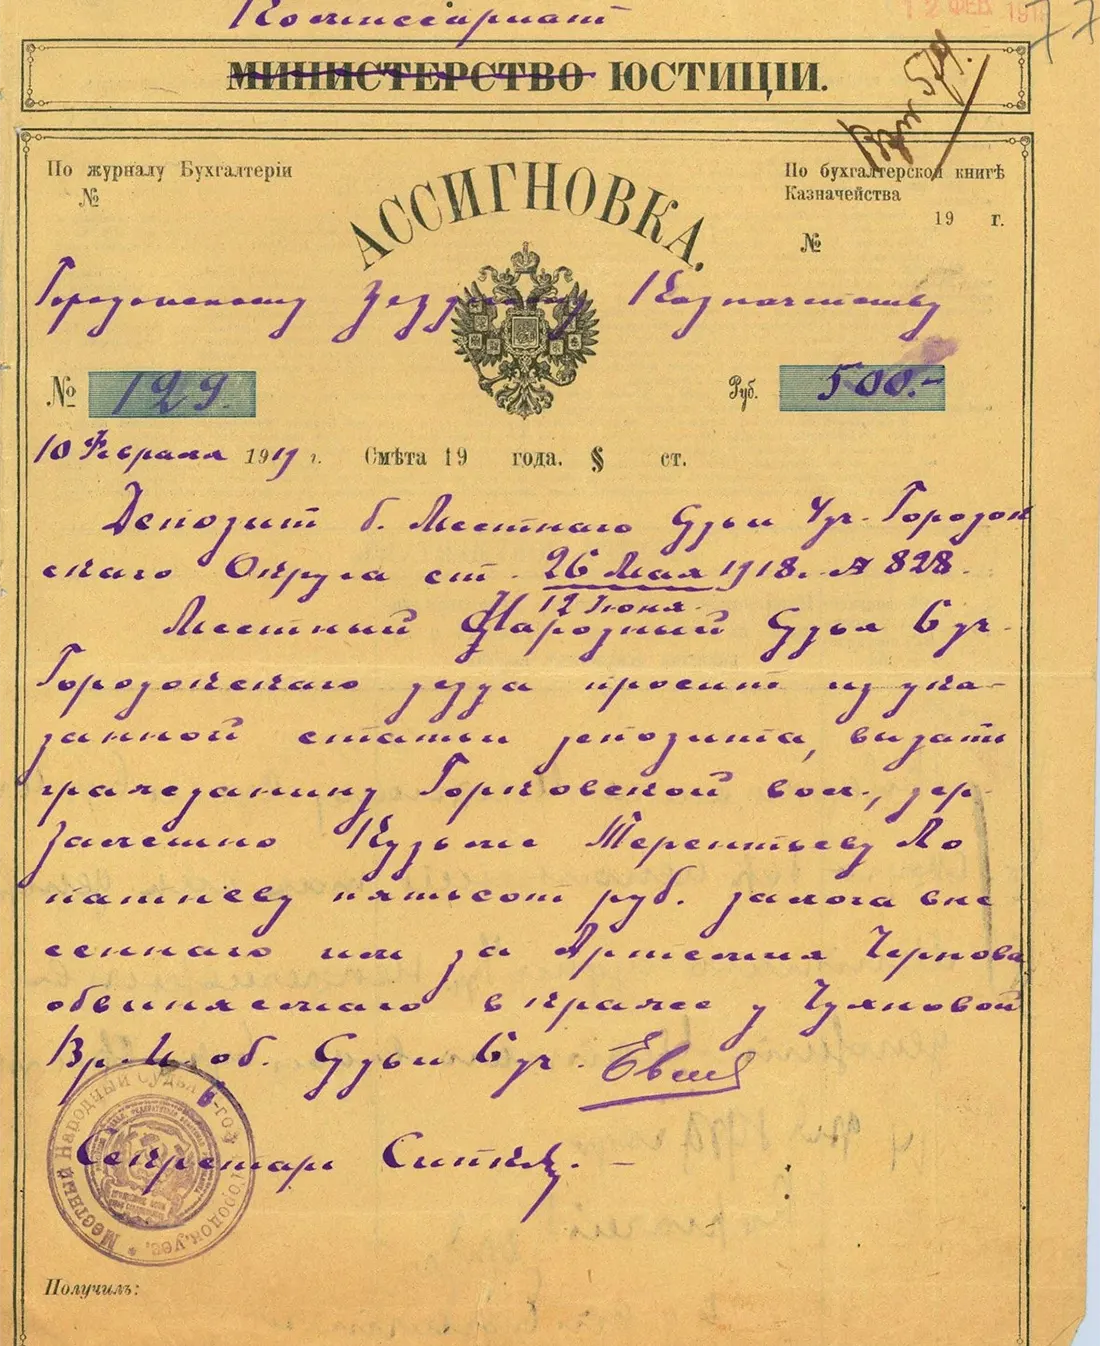 Комиссариат
12 ФЕВ 191
77
МИНИСТЕРСТВО ЮСТИЦІИ.
По журналу Бухгалтеріи
№
АССИГНОВКА.
По бухгалтерской книгѣ
Казначейства
19 г.
№
Городокскому Уездному Казначейству
№ 129.
Руб. 500.-
10 Февраля 1919 г. Смѣта 19 года. § ст.
Депозит б. Местнаго Судьи 4 уч. Городок
скаго Округа ст. 26 Мая 1918 г. № 828.
12 Июня
Местный Народный Судья 6 уч.
Городокскаго уезда просит из ука-
занной статьи депозита, выдать
гражданину Горковской вол., дер.
Залешно Кузьме Терентьеву Ло
патневу пятьсот руб. залога вне
сеннаго им за Артемия Чернова
обвиняемаго в краже у Чуяновой
Вр. И. об. Судьи 6 уч.
Местный Народный Судья 6-го уч. Городок. уес.
Секретарь
Получилъ: